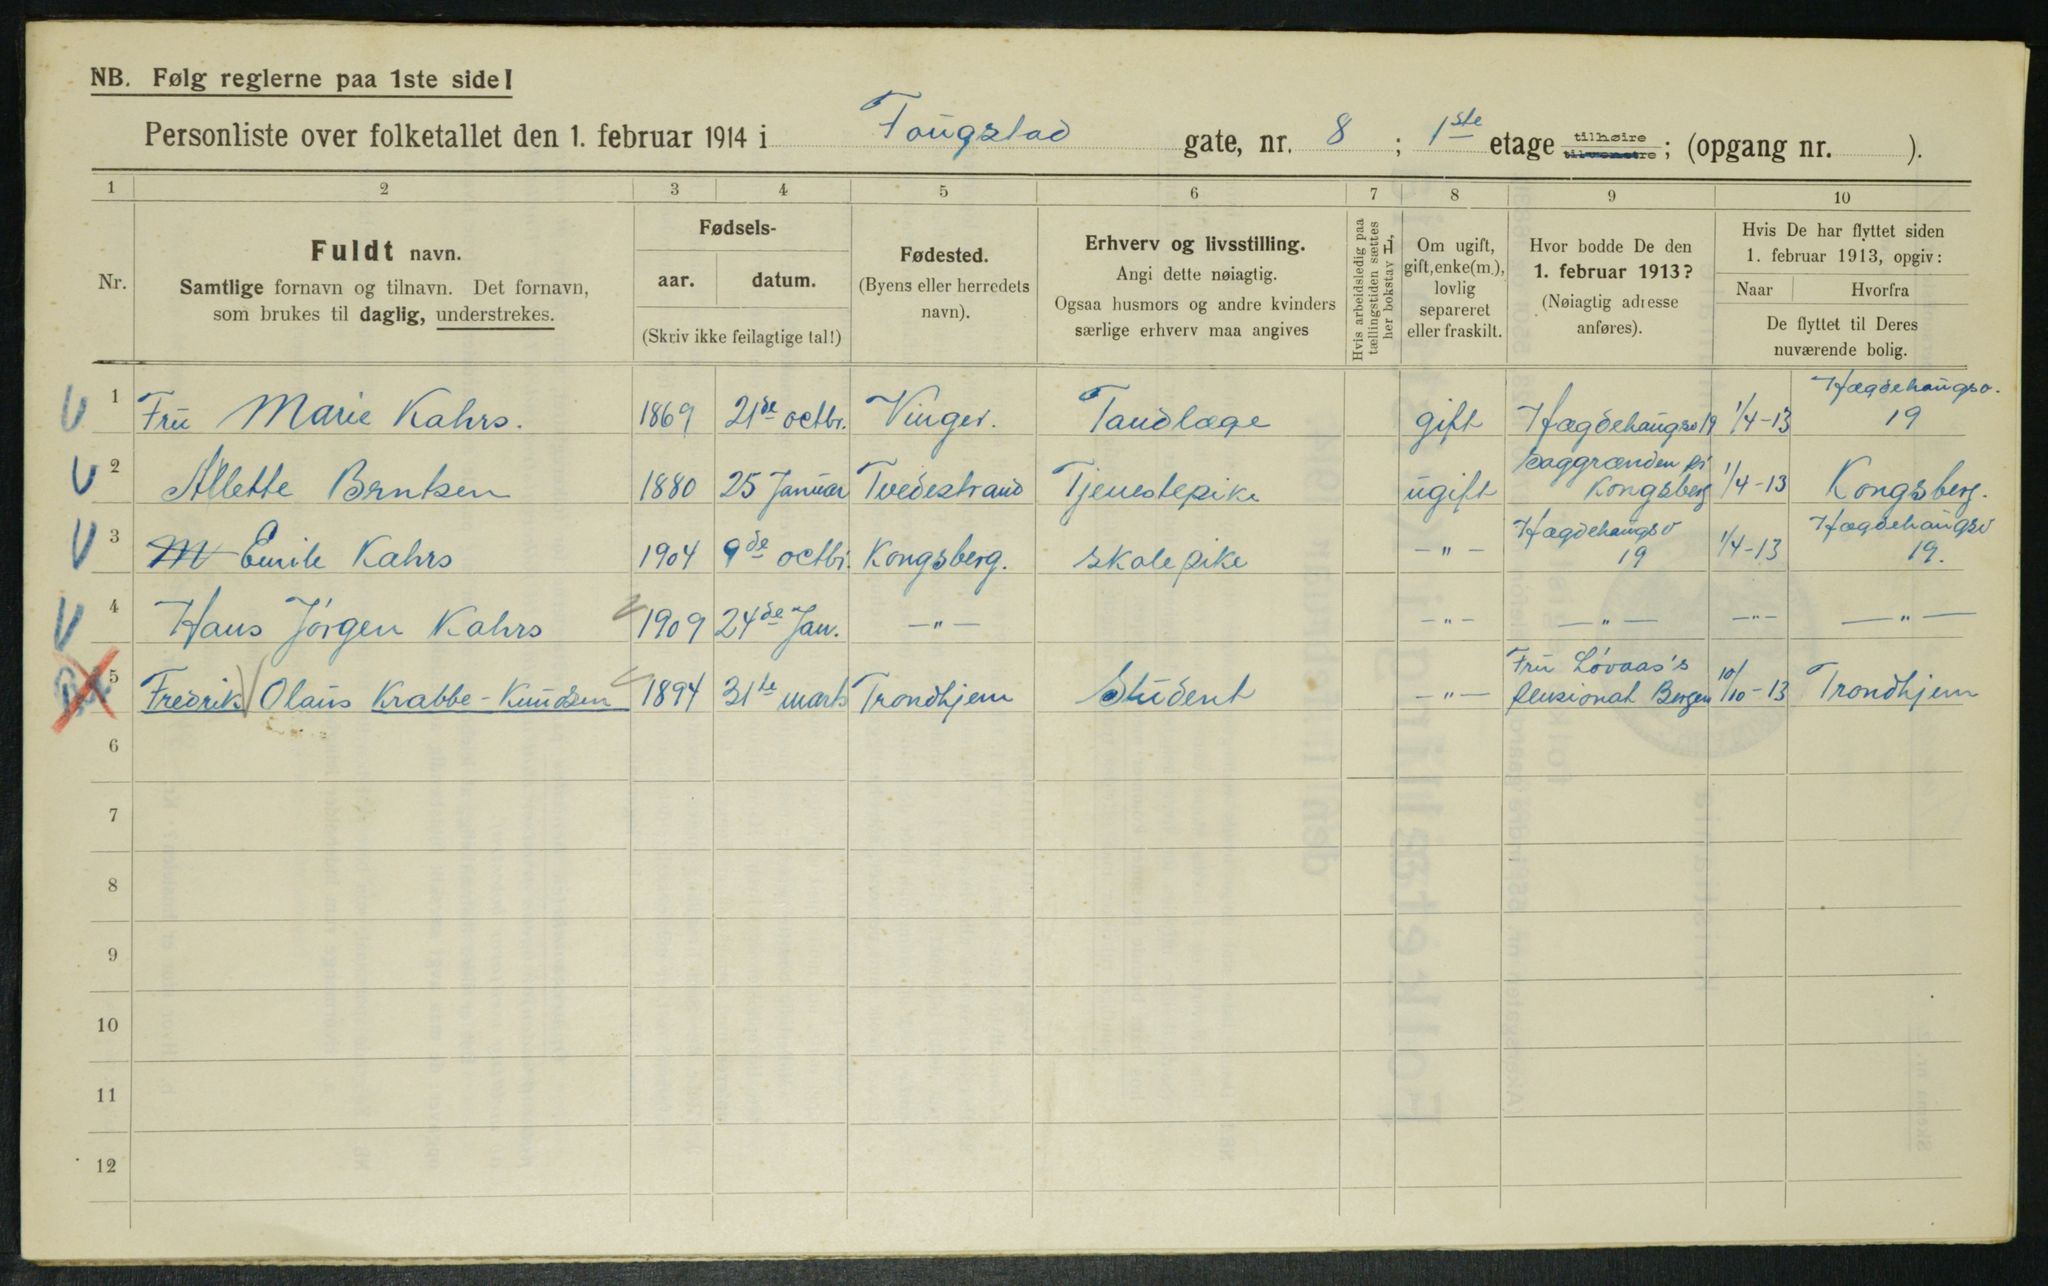 NB. Følg reglerne paa 1ste side!
Personliste over folketallet den 1. februar 1914 i Fougstad gate, nr. 8 ; 1ste etage tilhøire tilvenstre; (opgang nr. ).
1 2 3 4 5 6 7 8 9 10
Nr.
Fuldt navn.
Samtlige fornavn og tilnavn. Det fornavn,
som brukes til daglig, understrekes.
Fødsels-
aar. datum.
(Skriv ikke feilagtige tal!)
Fødested.
(Byens eller herredets
navn).
Erhverv og livsstilling.
Angi dette nøiagtig.
Ogsaa husmors og andre kvinders
særlige erhverv maa angives
Hvis arbeidsledig paa
tællingstiden sættes
her bokstav L,
Om ugift,
gift, enke(m.),
lovlig
separeret
eller fraskilt.
Hvor bodde De den
1. februar 1913?
(Nøiagtig adresse
anføres).
Hvis De har flyttet siden
1. februar 1913, opgiv:
Naar Hvorfra
De flyttet til Deres
nuværende bolig.
1 Fru Marie Kahrs. 1869 21de octbr. Vinger. Tandlæge gift Hægdehaugsv 19 1/4-13 Hægdehaugsv. 19
2 Allette Berntsen 1880 25 Januar Tvedestrand Tjenestepike ugift Baggrænden pi Kongsberg 1/4-13 Kongsberg.
3 M Emile Kahrs 1904 9de octbr. Kongsberg. skolepike -"- Hægdehaugsv 19 1/4-13 Hægdehaugsv 19.
4 Hans Jörgen Kahrs 1909 24de Jan. -"- -"- -"- -"- -"-
5 Fredrik Olaus Krabbe-Knudsen 1894 31te marts Trondhjem Student -"- Fru Lóvaas's pensionat Bergen 10/10-13 Trondhjem
6
7
8
9
10
11
12